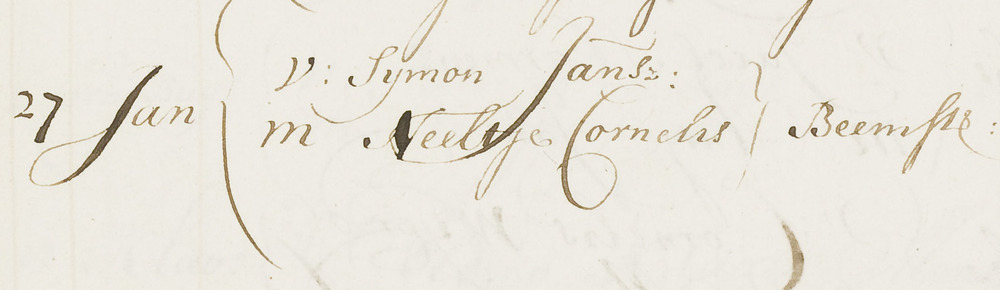 V: Symon Jansz:
27 Jan m Neeltje Cornelis Beemstr: